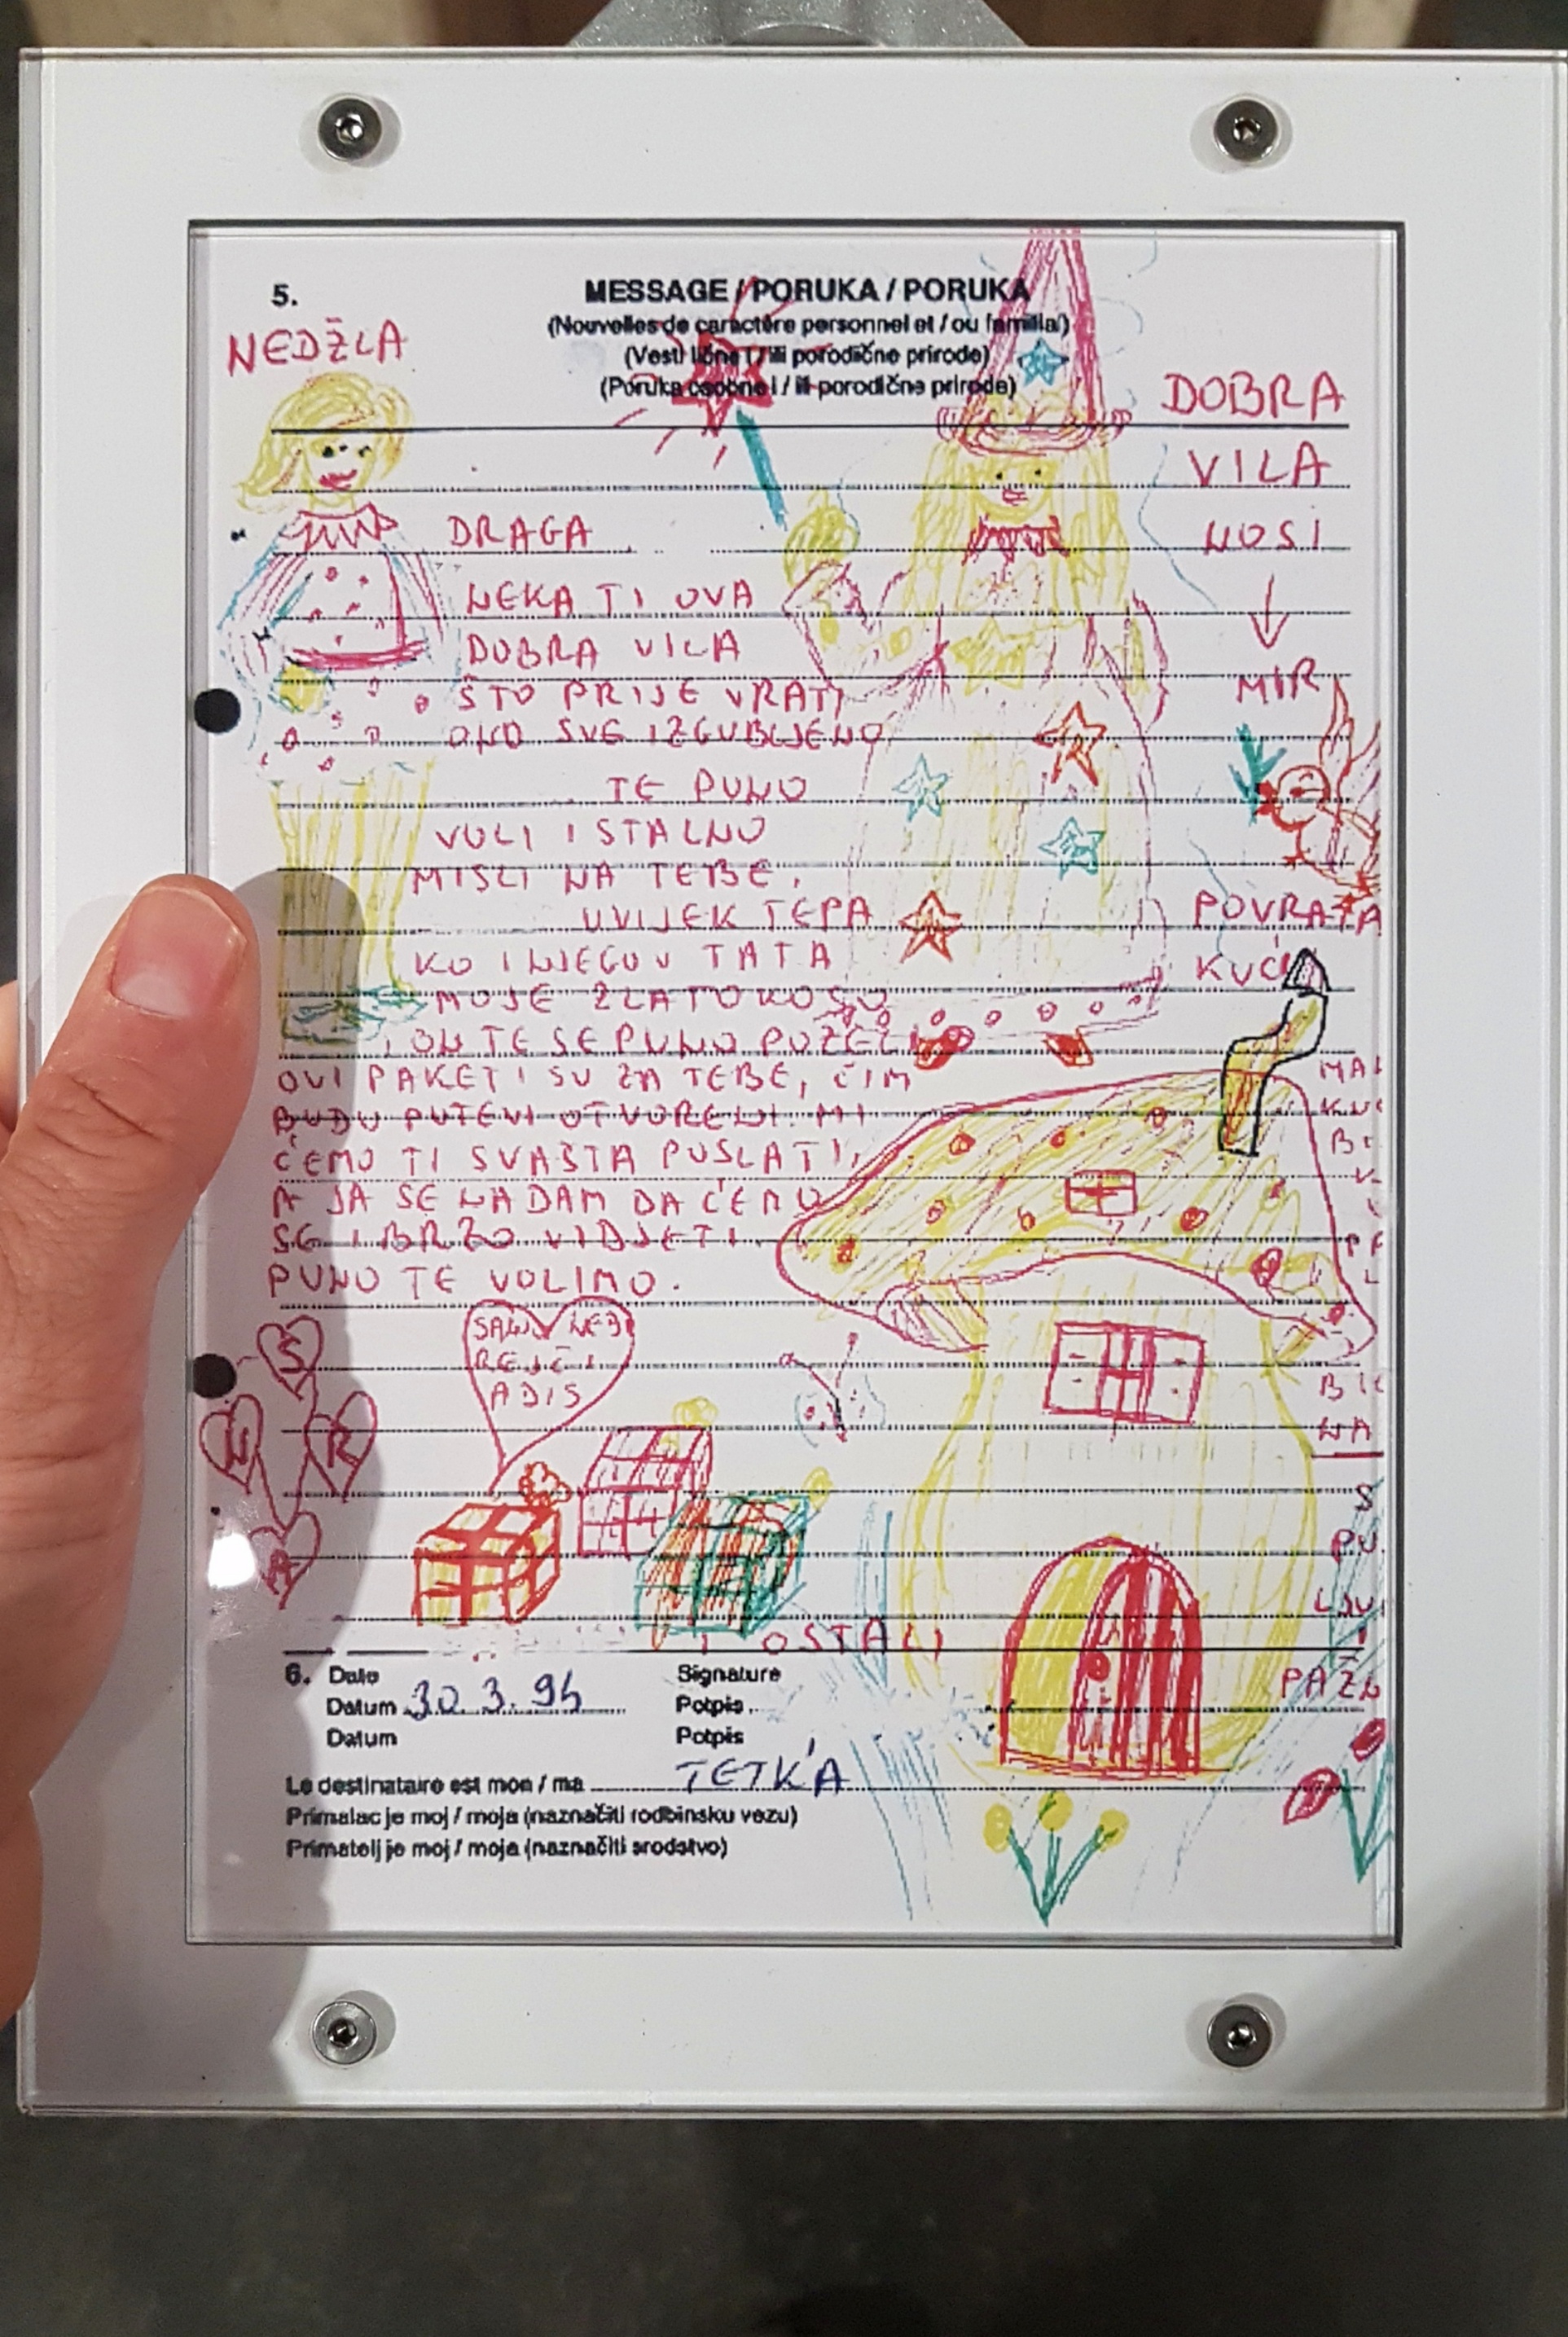 5.
MESSAGE / PORUKA / PORUKA
(Nouvelles de caractère personnel et / ou familial)
(Vesti lične i / ili porodične prirode)
(Poruka osobne i / ili porodične prirode)
NEDŽLA
DRAGA
NEKA TI OVA
DOBRA VILA
ŠTO PRIJE VRATI
ONO SVE IZGUBLJENO
TE PUNO
VOLI I STALNO
MISLI NA TEBE.
UVIJEK TEPA
KO I NJEGOV TATA
MOJE ZLATOKOSO
I ON TE SE PUNO POŽELI
OVI PAKETI SU ZA TEBE, ČIM
BUDU PUTEVI OTVORENI MI
ĆEMO TI SVAŠTA POSLATI,
A JA SE NADAM DA ĆEMO
SE I BRZO VIDJETI.
PUNO TE VOLIMO.
DOBRA
VILA
NOSI
MIR
KUĆI
NA
S
N
R
A
ADIS
I OSTALI
6. Date
Datum 30.3.94
Datum
Signature
Potpis
Potpis
Le destinataire est mon / ma TETKA
Primalac je moj / moja (naznačiti rodbinsku vezu)
Primatelj je moj / moja (naznačiti srodstvo)